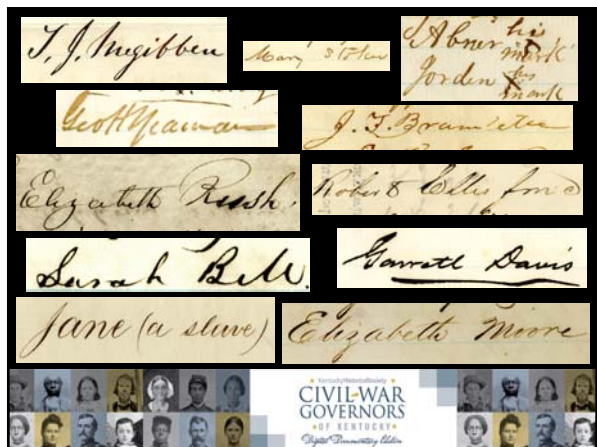 T. J. Megibben
Mary Stoker
Abner his mark
Jorden his mark
Geo H Yeaman
J. F. Bramlette
Elizabeth Rush.
Robert Ellis fmc
Sarah Bell.
Garrett Davis
Jane (a slave)
Elizabeth Moore
Kentucky Historical Society
CIVIL WAR
GOVERNORS
OF KENTUCKY
Digital Documentary Edition